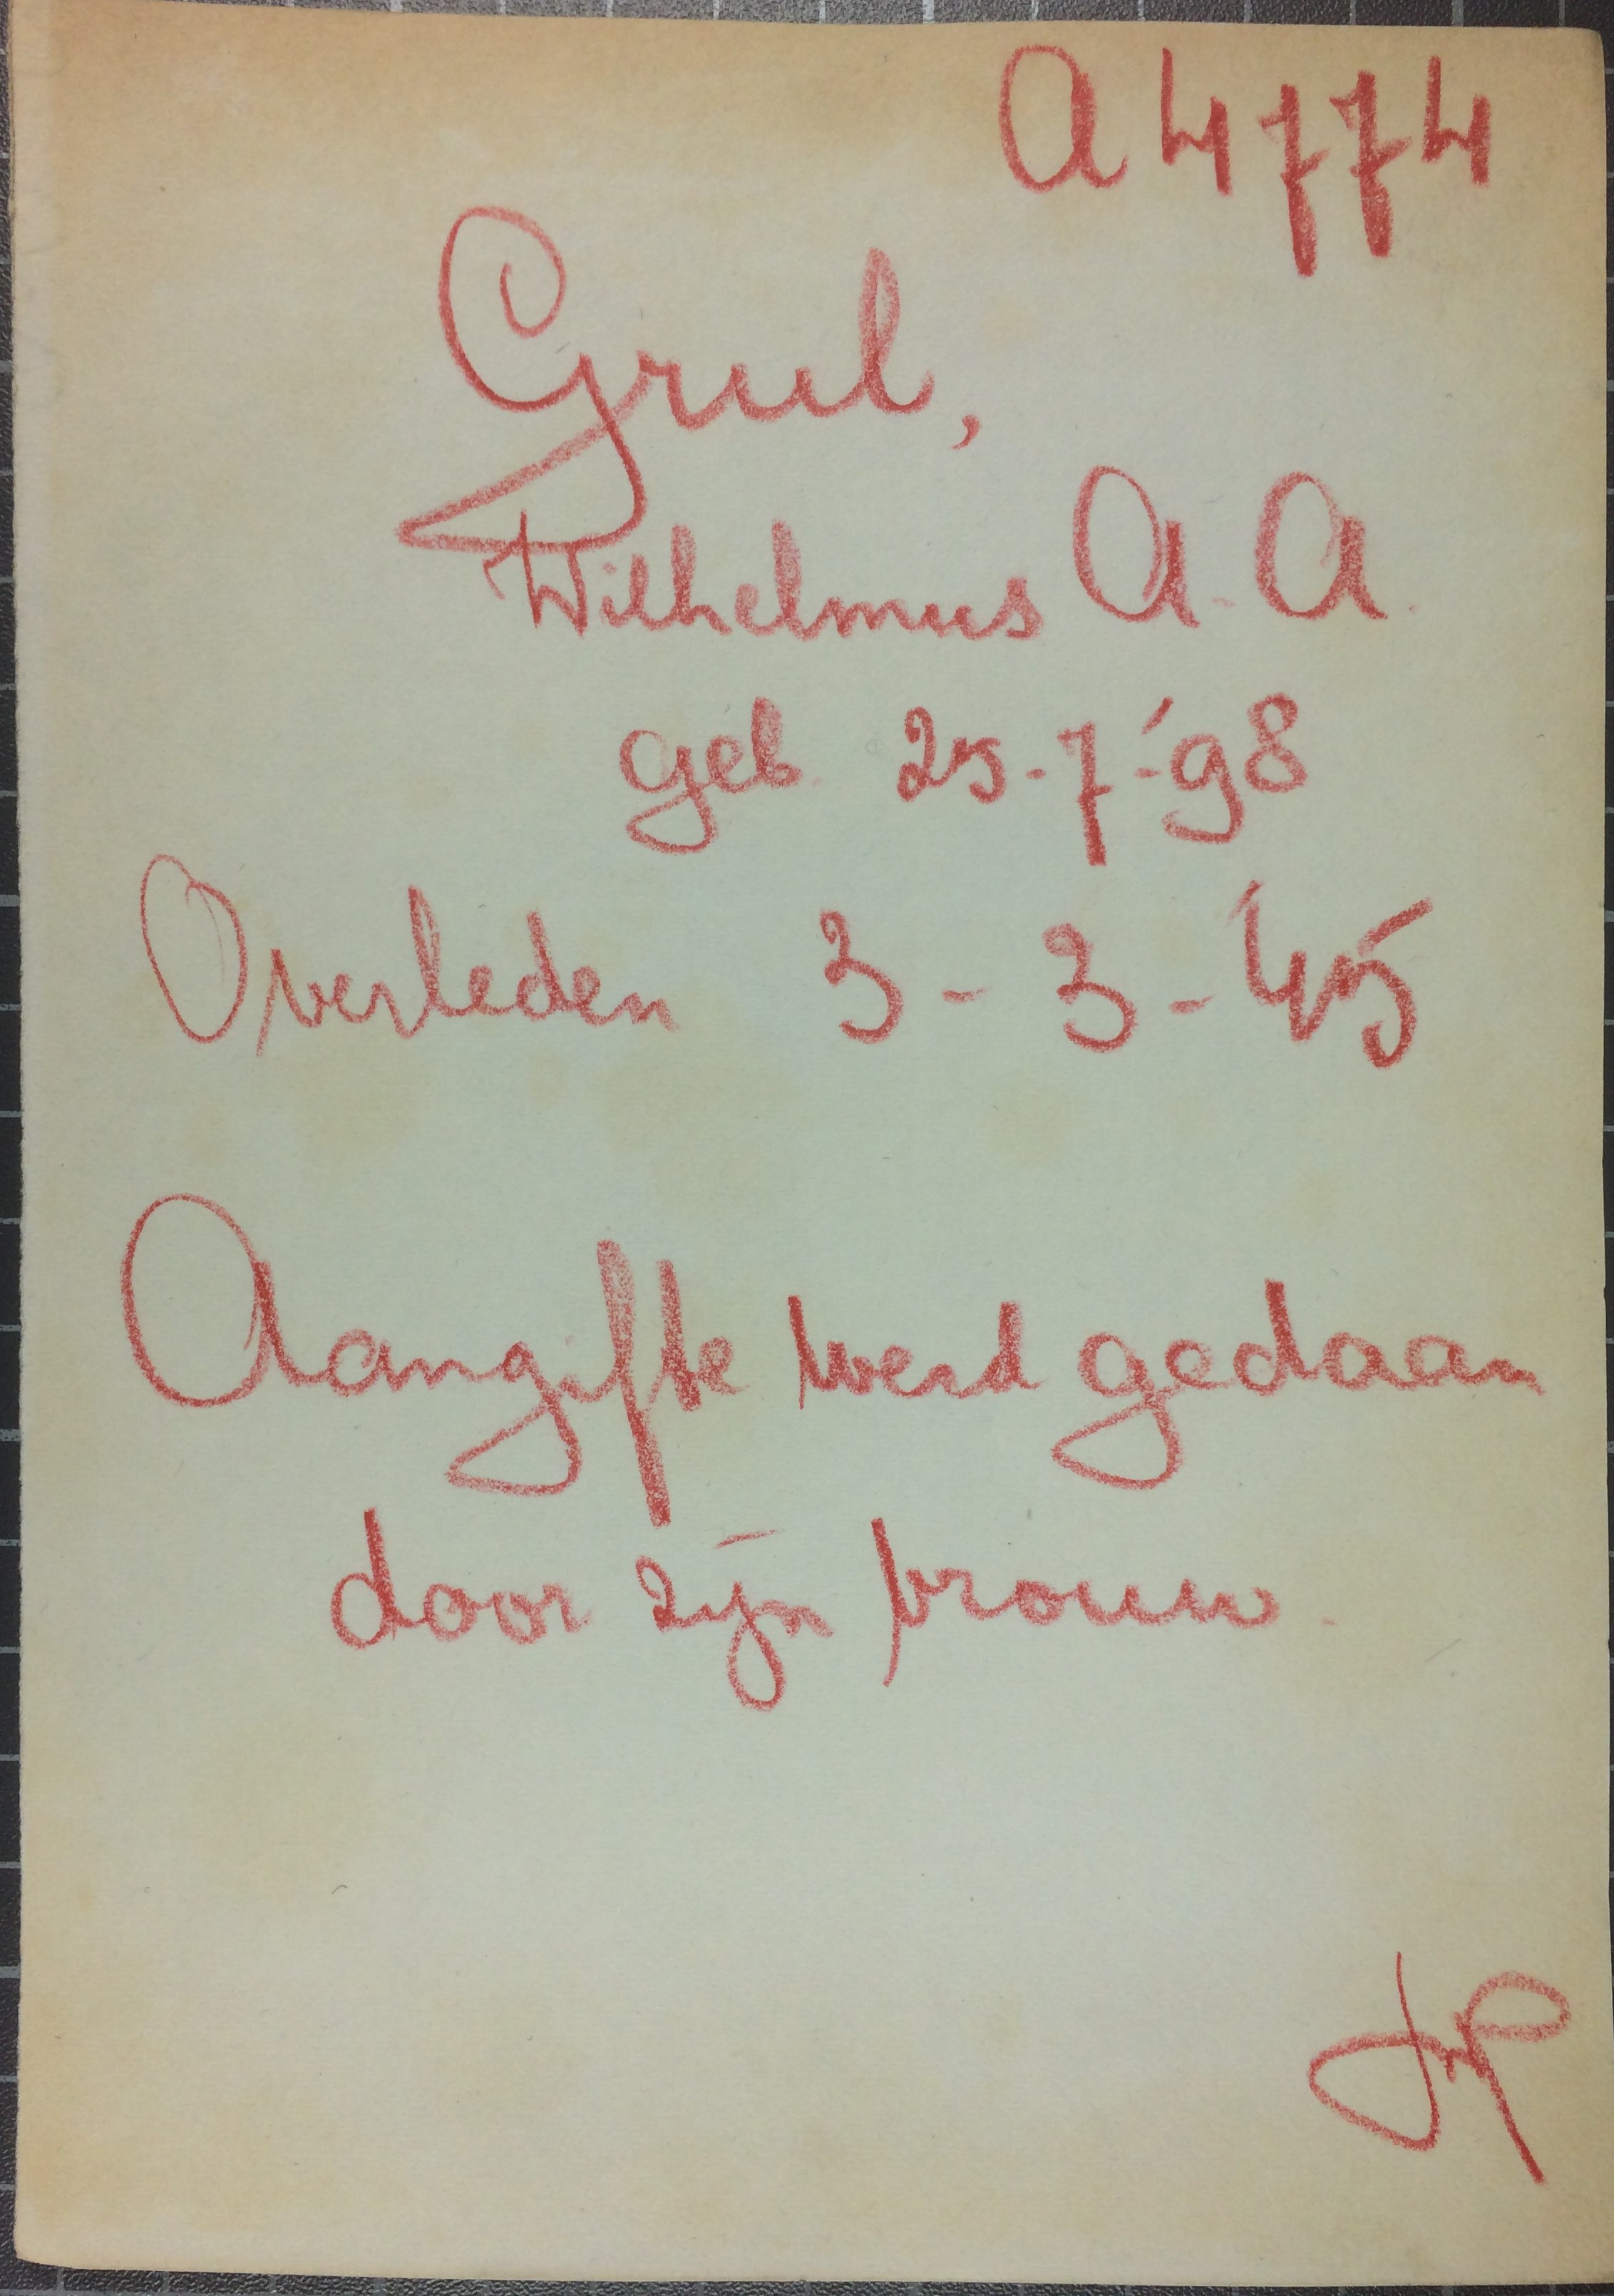 A 4774
Grul,
Wilhelmus A. A.
geb. 25-7-'98
Overleden 3-3-'45
Aangifte werd gedaan
door zijn vrouw.